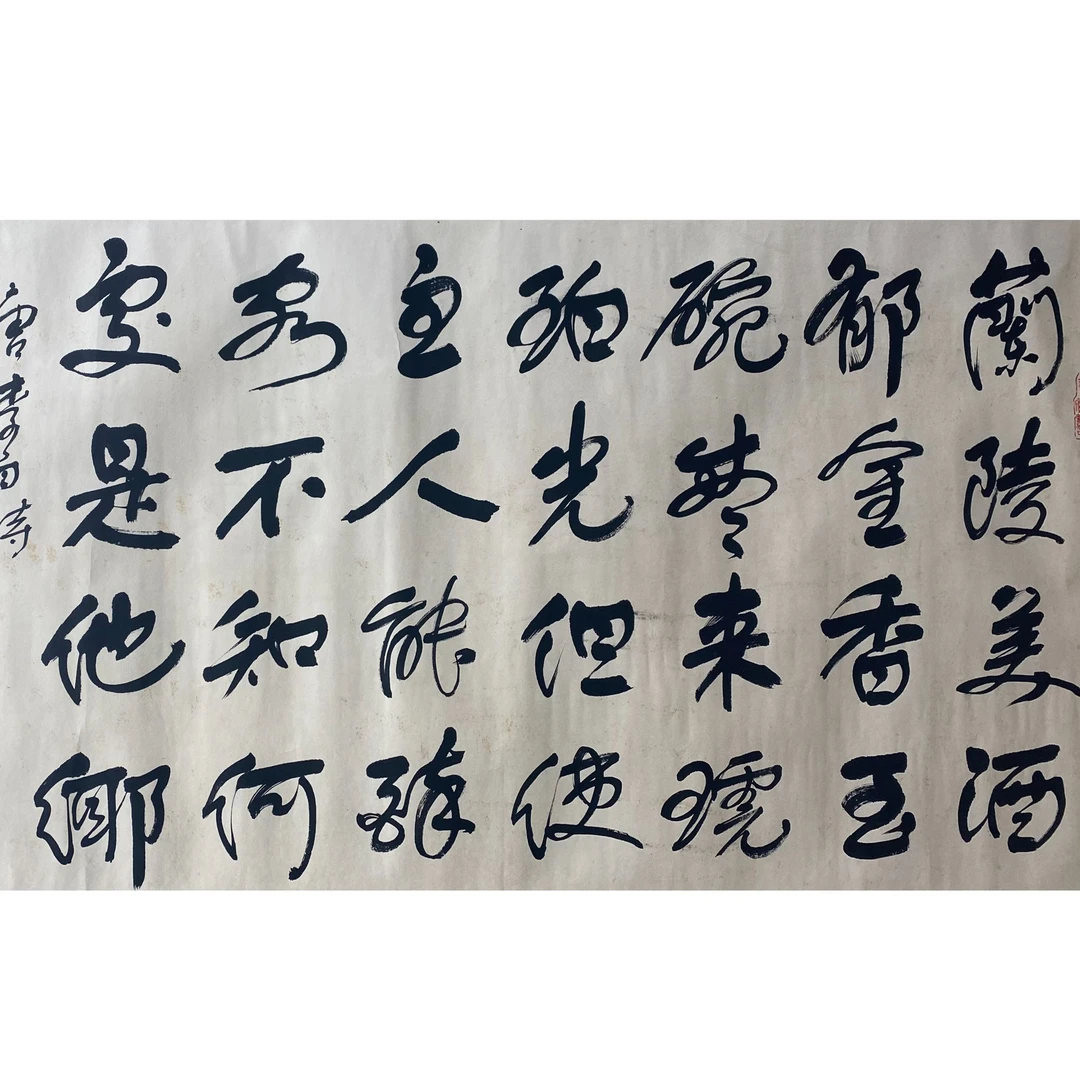 蘭陵美酒
郁金香玉
碗盛来琥
珀光但使
主人能醉
客不知何
處是他鄉
唐李白詩